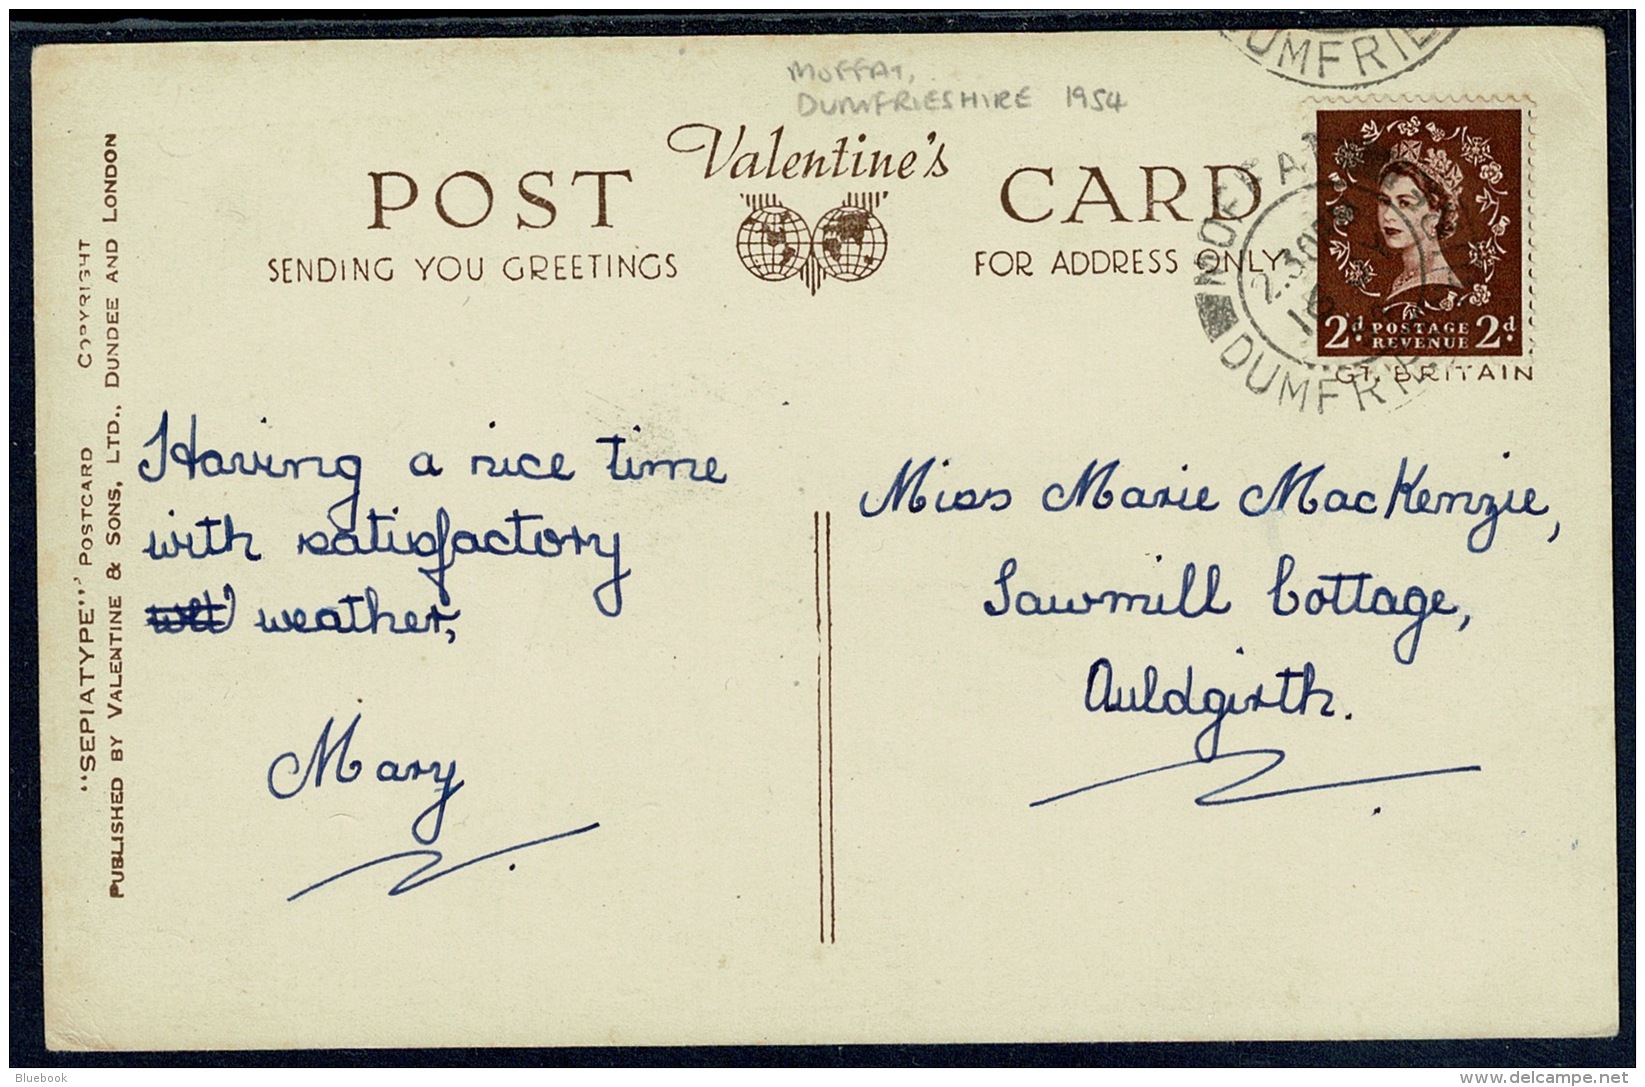 MOFFAT,
DUMFRIESHIRE 1954
Valentine's
POST CARD
SENDING YOU GREETINGS
FOR ADDRESS ONLY
"SEPIATYPE" POSTCARD COPYRIGHT
PUBLISHED BY VALENTINE & SONS, LTD., DUNDEE AND LONDON
DUMFRIE
MOFFAT
2.30PM
DUMFRIE
2d POSTAGE 2d
REVENUE
GT. BRITAIN
Having a nice time
with satisfactory
weather,
Mary
Miss Marie MacKenzie,
Sawmill Cottage,
Auldgirth.
Bluebook
www.delcampe.net